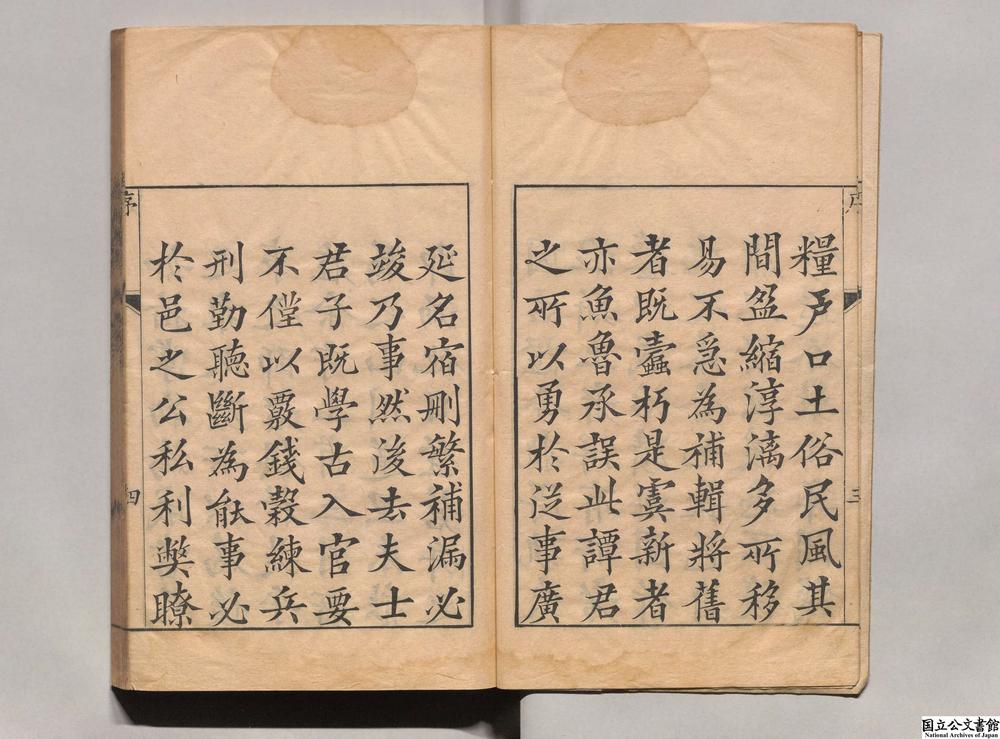 糧戸口土俗民風其
間盈縮淳漓多所移
易不急為補輯將舊
者既蠹朽是虞新者
亦魚魯承誤此譚君
之所以勇於從事廣
延名宿刪繁補漏必
竣乃事然後去夫士
君子既學古入官要
不僅以覈錢穀練兵
刑勤聽斷為能事必
於邑之公私利獘瞭
序
三
序
四
国立公文書館
National Archives of Japan